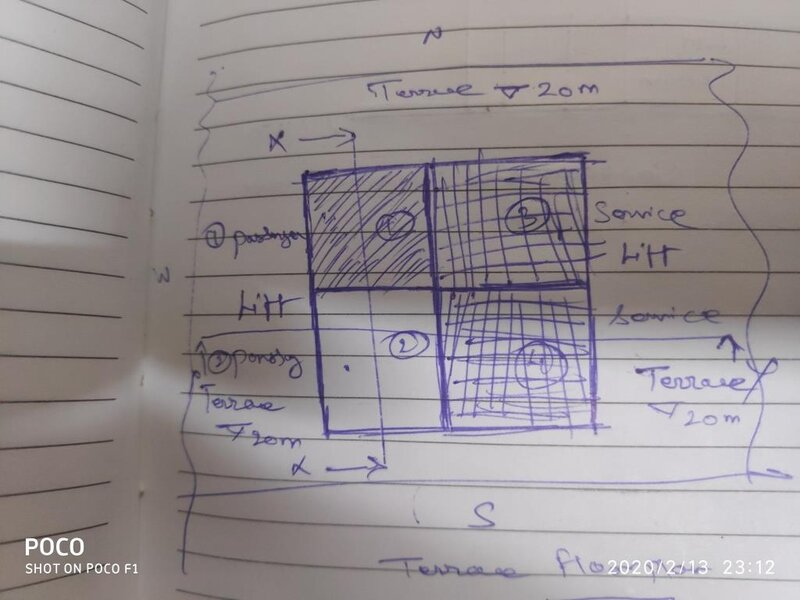 N
Terrace ▽ 20m
X
① 3 Service
① passenger
Lift
W
Lift
2
Service
4
②
Terrace
▽ 20m
Terrace
▽ 20m
X
S
Terrace floor
POCO
SHOT ON POCO F1
2020/2/13 23:12